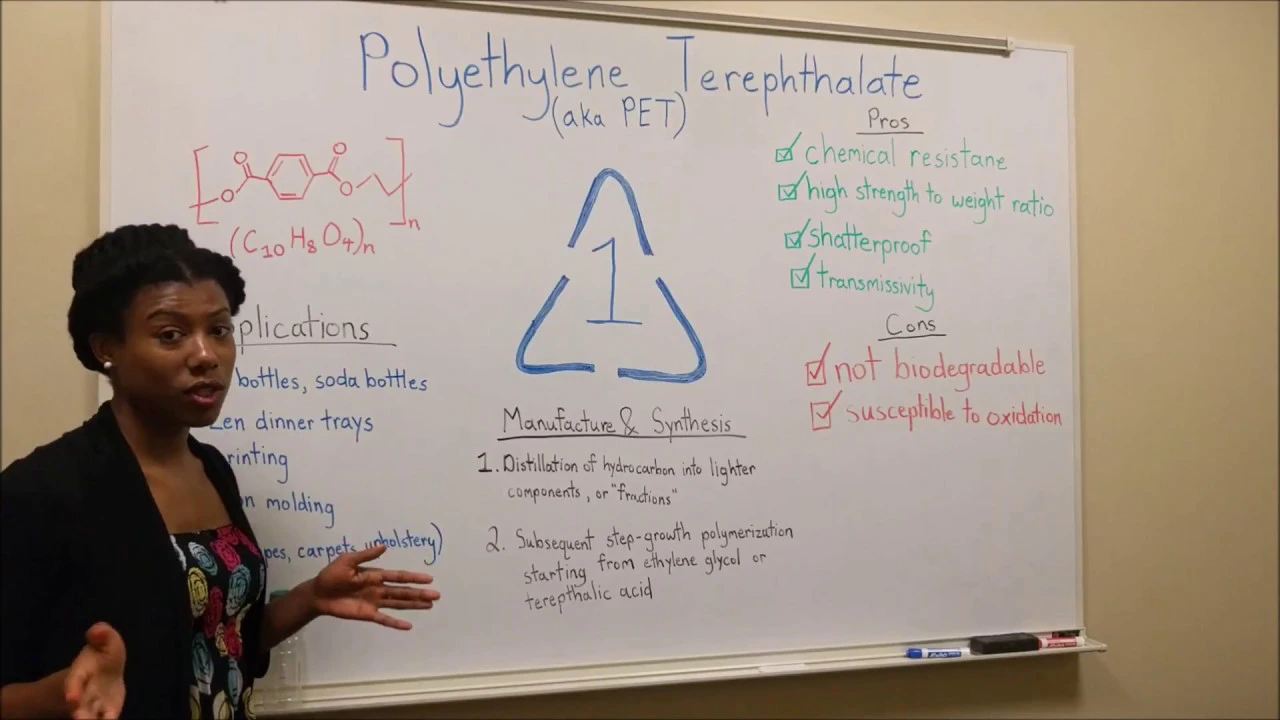 Polyethylene Terephthalate
(aka PET)
[ O O O O ]n
(C10 H8 O4)n
plications
bottles, soda bottles
en dinner trays
rinting
n molding
pes, carpets, upholstery)
1
Manufacture & Synthesis
1. Distillation of hydrocarbon into lighter
components, or "fractions"
2. Subsequent step-growth polymerization
starting from ethylene glycol or
terepthalic acid
Pros
chemical resistane
high strength to weight ratio
shatterproof
transmissivity
Cons
not biodegradable
susceptible to oxidation